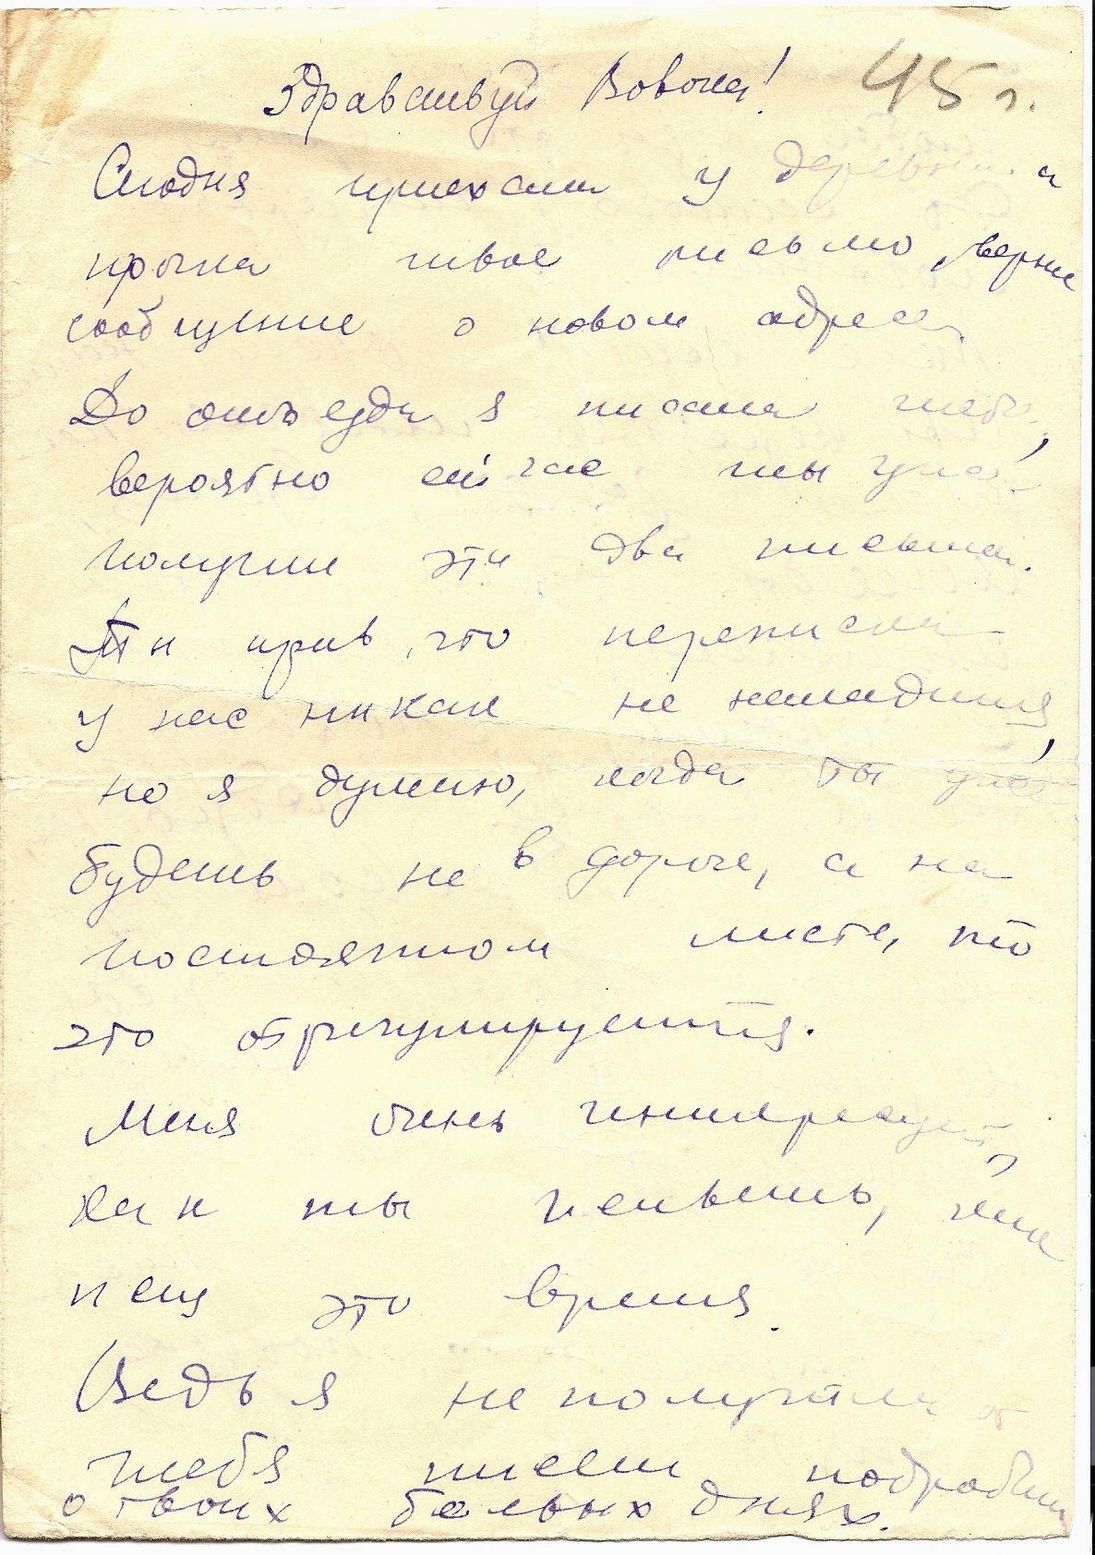 Здравствуй Вовочка! 45 г.
Сегодня приехала из деревни и
прочла твое письмо, верне
сообщение о новом адресе.
До отъезда я писала тебе,
вероятно сейчас ты уже
получил эти два письма.
Ты прав, что переписка
у нас никак не наладится,
но я думаю, когда ты уже
будешь не в дороге, а на
постоянном месте, то
это отрегулируется.
Меня очень интересует,
как ты живешь, как
это время.
Ведь я не получала от
тебя писем подробных
о твоих боевых днях.